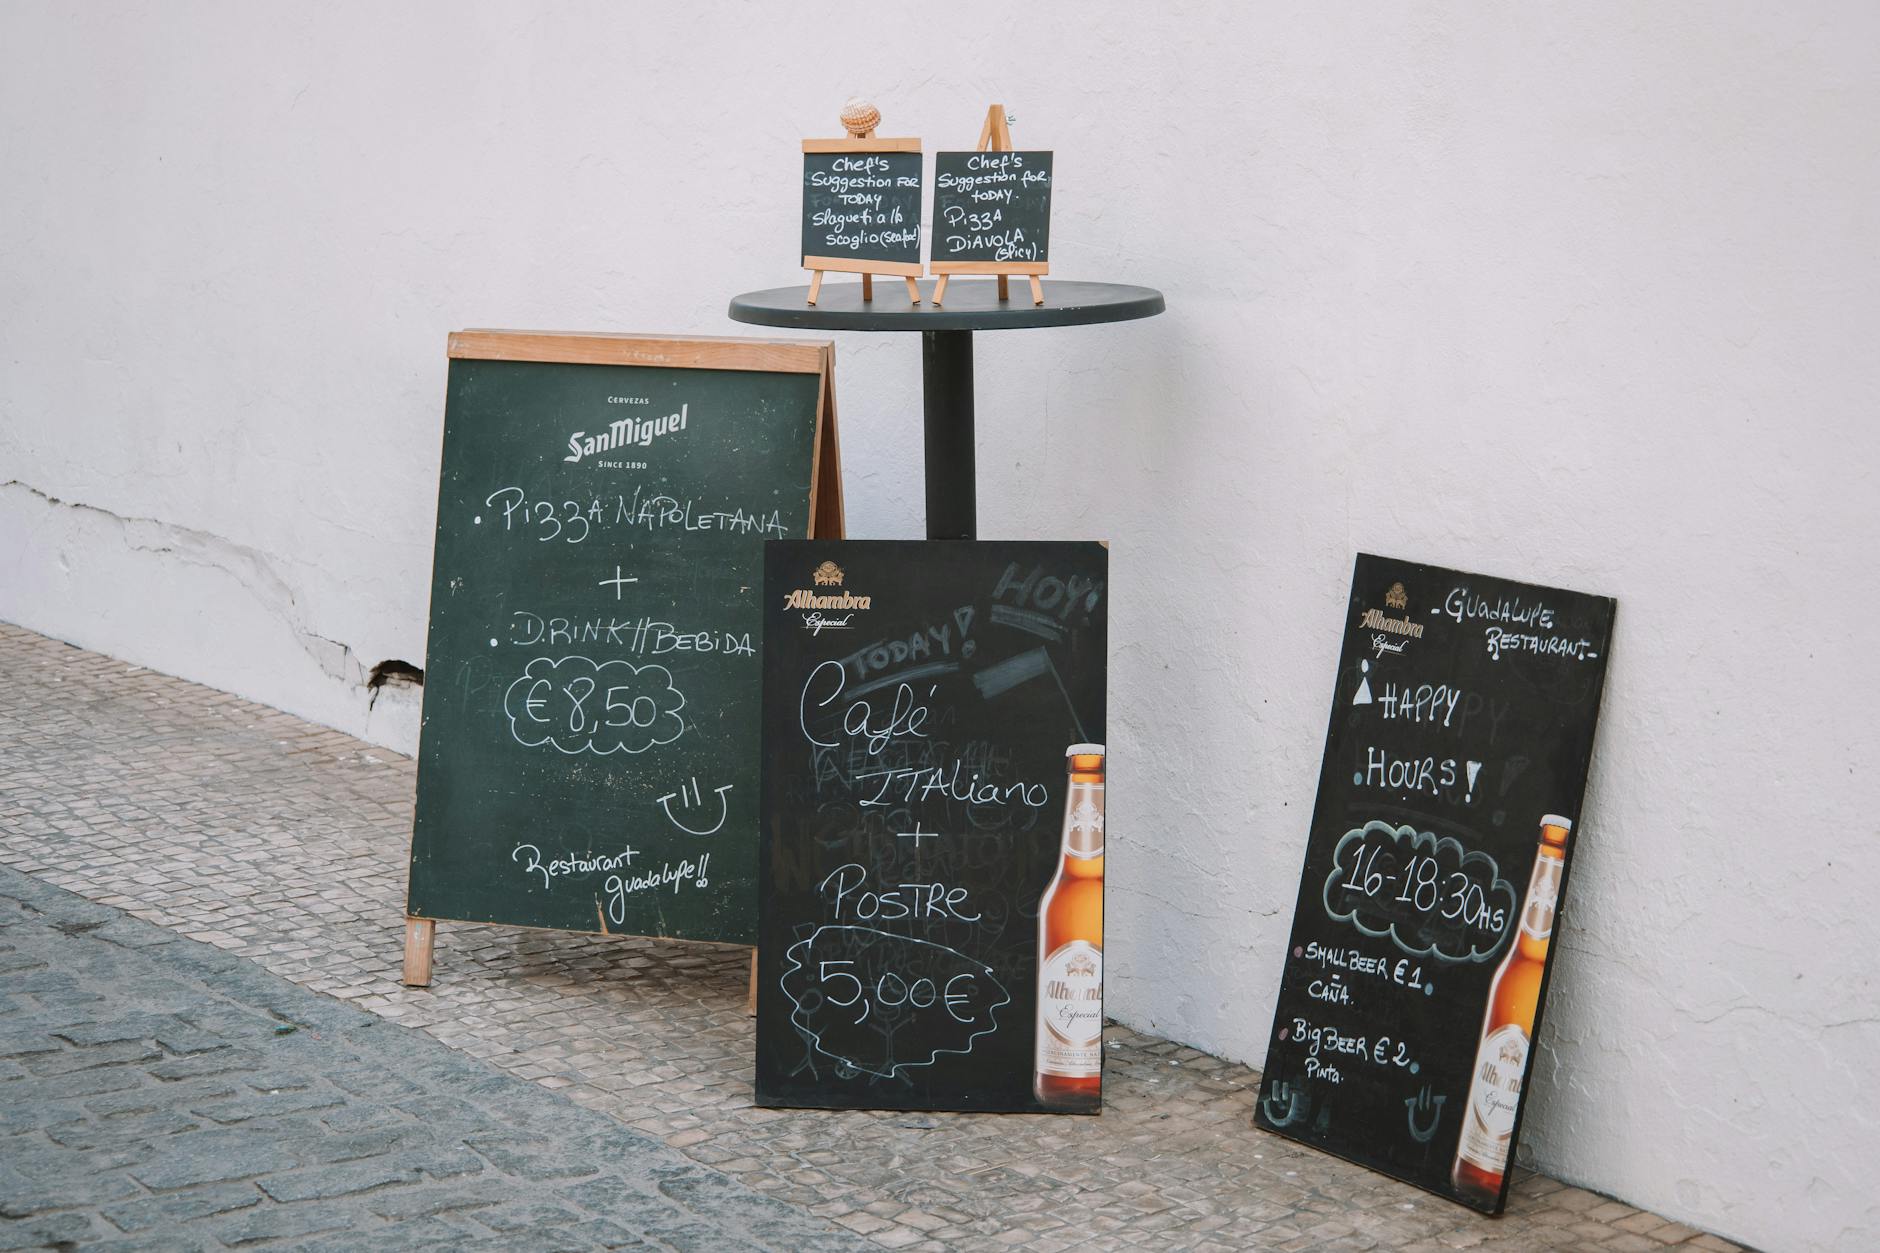 Chef's
Suggestion FOR
TODAY
Slagueti a lo
scoglio (seafood)
Chef's
Suggestion for
TODAY.
Pizza
DIAVOLA
(SPICY).
CERVEZAS
SanMiguel
SINCE 1890
• PizzA NAPOLETANA
+
• DRINK//BEBIDA
€8,50
Restaurant
guadalupe!!
Alhambra
Especial
HOY!
TODAY!
Café
ITAliano
+
POSTRE
5,00€
Alhambra
Especial
Alhambra
Especial
-GUADALUPE
RESTAURANT-
¡HAPPY
HOURS!
16-18:30HS
• SMALL BEER €1.
CAÑA.
• BIG BEER €2.
Pinta.
Alhambra
Especial